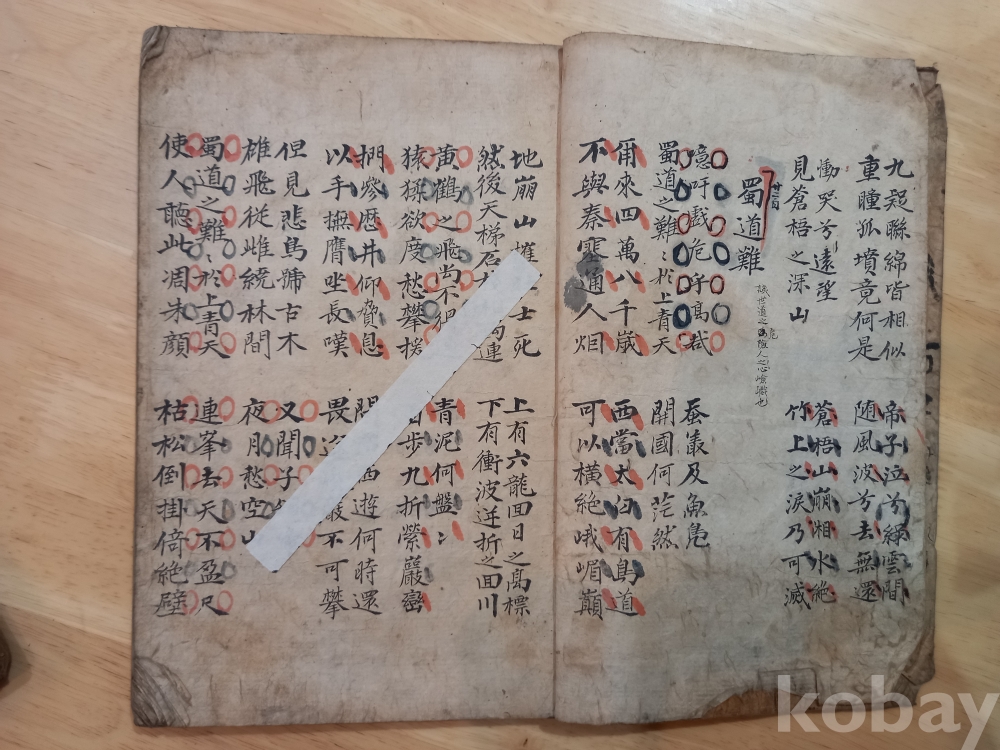 九疑聯綿皆相似
重瞳孤墳竟何是
帝子泣兮綠雲間
随風波兮去無還
慟哭兮遠望
見蒼梧之深山
蒼梧山崩湘水絶
竹上之淚乃可滅
蜀道難
噫吁戱危乎高哉
蜀道之難〻於上青天
蚕叢及魚鳧
開國何茫然
爾來四萬八千歲
不與秦塞通人烟
西當太白有鳥道
可以橫絶峨嵋巔
地崩山摧士死
然後天梯石連
上有六龍回日之高標
下有衝波逆折之回川
黃鶴之飛尙不
猿猱欲度愁攀援
青泥何盤〻
步九折縈巖巒
捫參歷井仰脅息
以手撫膺坐長嘆
西遊何時還
畏巖不可攀
但見悲鳥號古木
雄飛從雌繞林間
又聞子
夜月愁空山
蜀道之難〻於上青天
使人聽此凋朱顔
連峯去天不盈尺
枯松倒掛倚絶壁
kobay